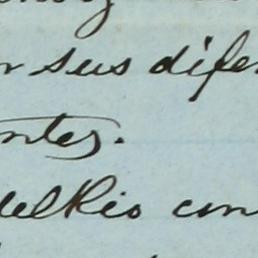 r sus difer
ntes.
del Rio con